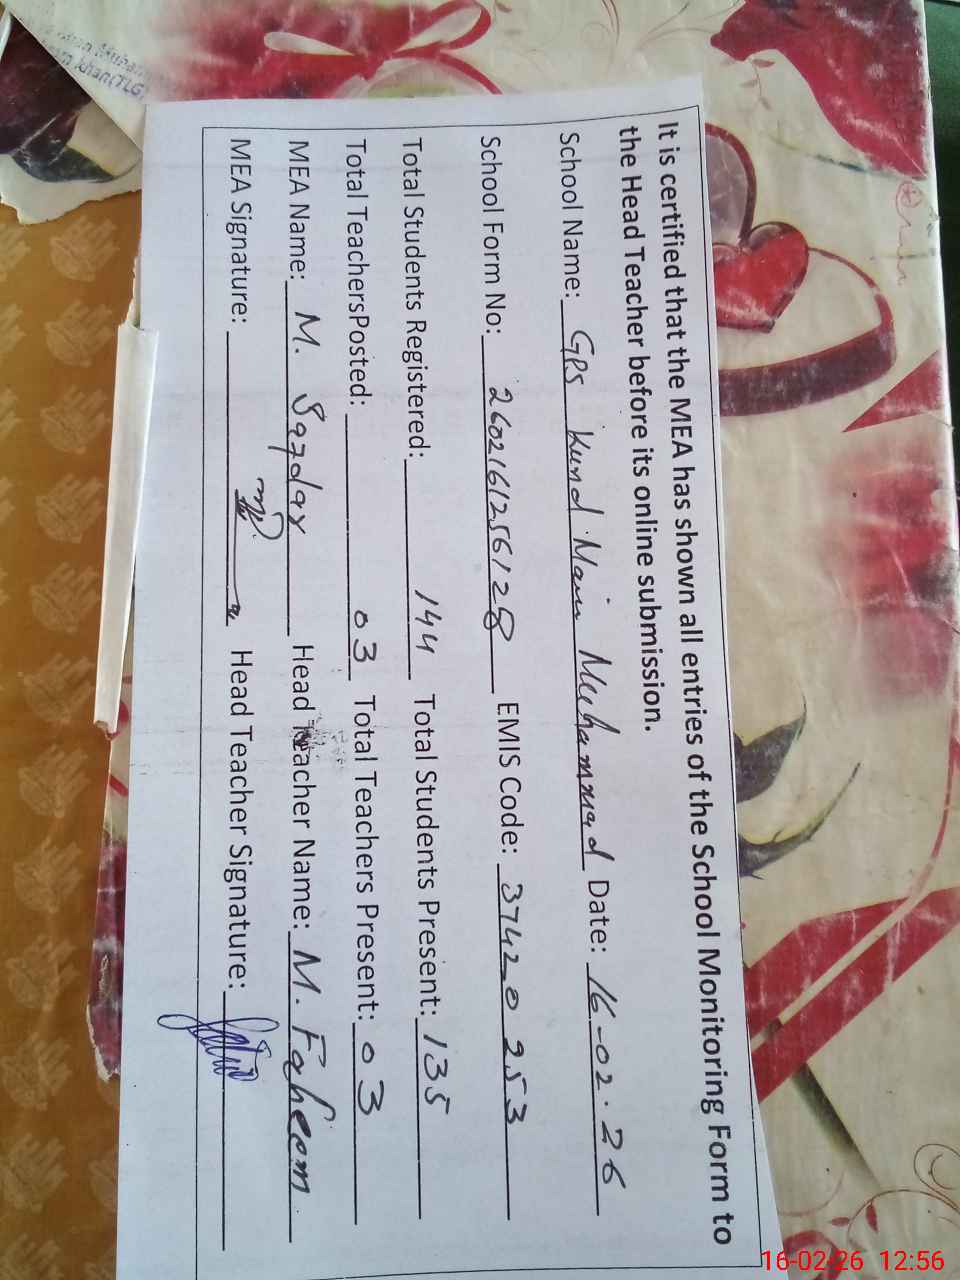 It is certified that the MEA has shown all entries of the School Monitoring Form to
the Head Teacher before its online submission.
School Name: GPS Kund Main Muhammad Date: 16-02-26
School Form No: 2602161256128 EMIS Code: 37420253
Total Students Registered: 144 Total Students Present: 135
Total TeachersPosted: 03 Total Teachers Present: 03
MEA Name: M. Safdar Head Teacher Name: M. Faheem
MEA Signature: Head Teacher Signature:
khan(TLG)
16-02-26 12:56